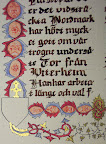 er det vidsträ
cka Nordmark
har hört myck
et gott om vår
trogne underså
te Tor från
Utterhem
Han har arbeta
t länge och väl f